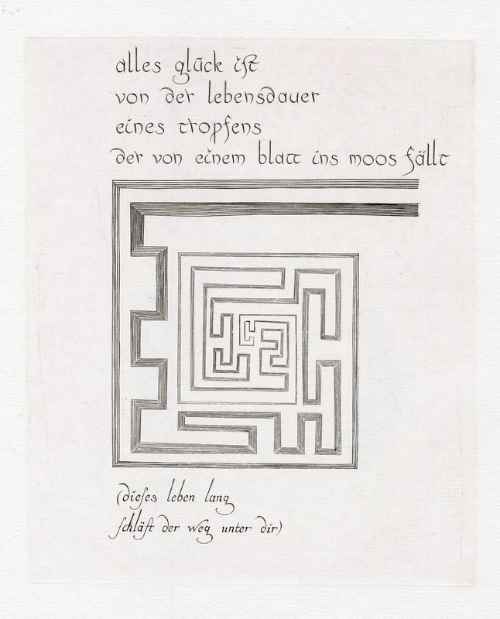 alles glück ist
von der lebensdauer
eines tropfens
der von einem blatt ins moos fällt
(dieses leben lang
schläft der weg unter dir)